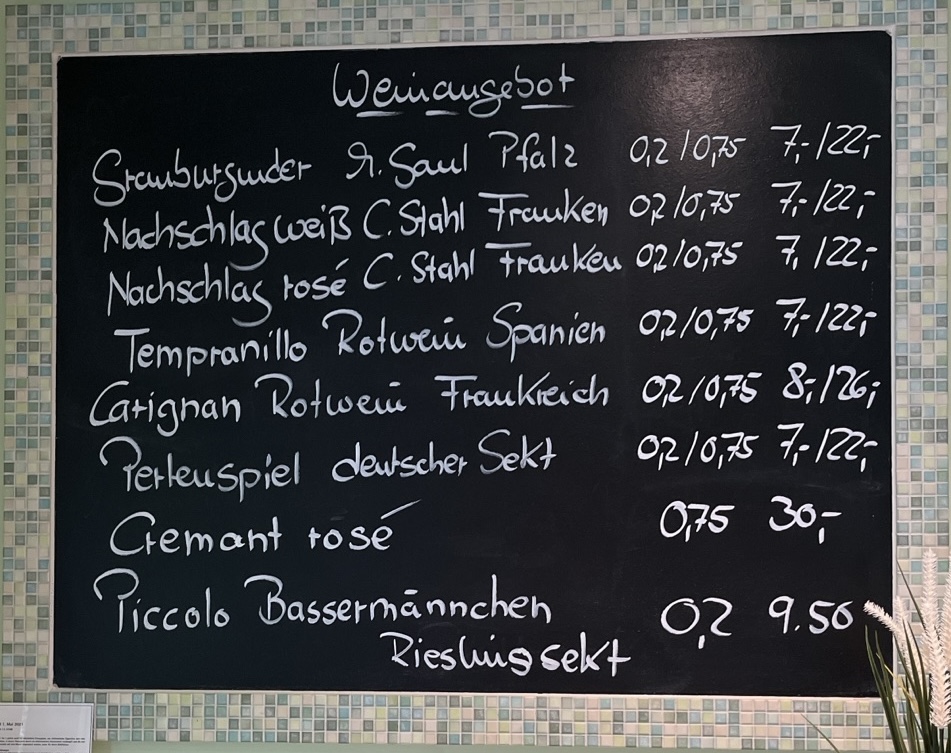 Weinangebot
Grauburgunder A. Gaul Pfalz 0,2/0,75 7,-/22,-
Nachschlag weiß C. Stahl Franken 0,2/0,75 7,-/22,-
Nachschlag rosé C. Stahl Franken 0,2/0,75 7,/22,-
Tempranillo Rotwein Spanien 0,2/0,75 7,-/22,-
Carignan Rotwein Frankreich 0,2/0,75 8,-/26,-
Perlenspiel deutscher Sekt 0,2/0,75 7,-/22,-
Cremant rosé 0,75 30,-
Piccolo Bassermännchen 0,2 9.50
Rieslingsekt